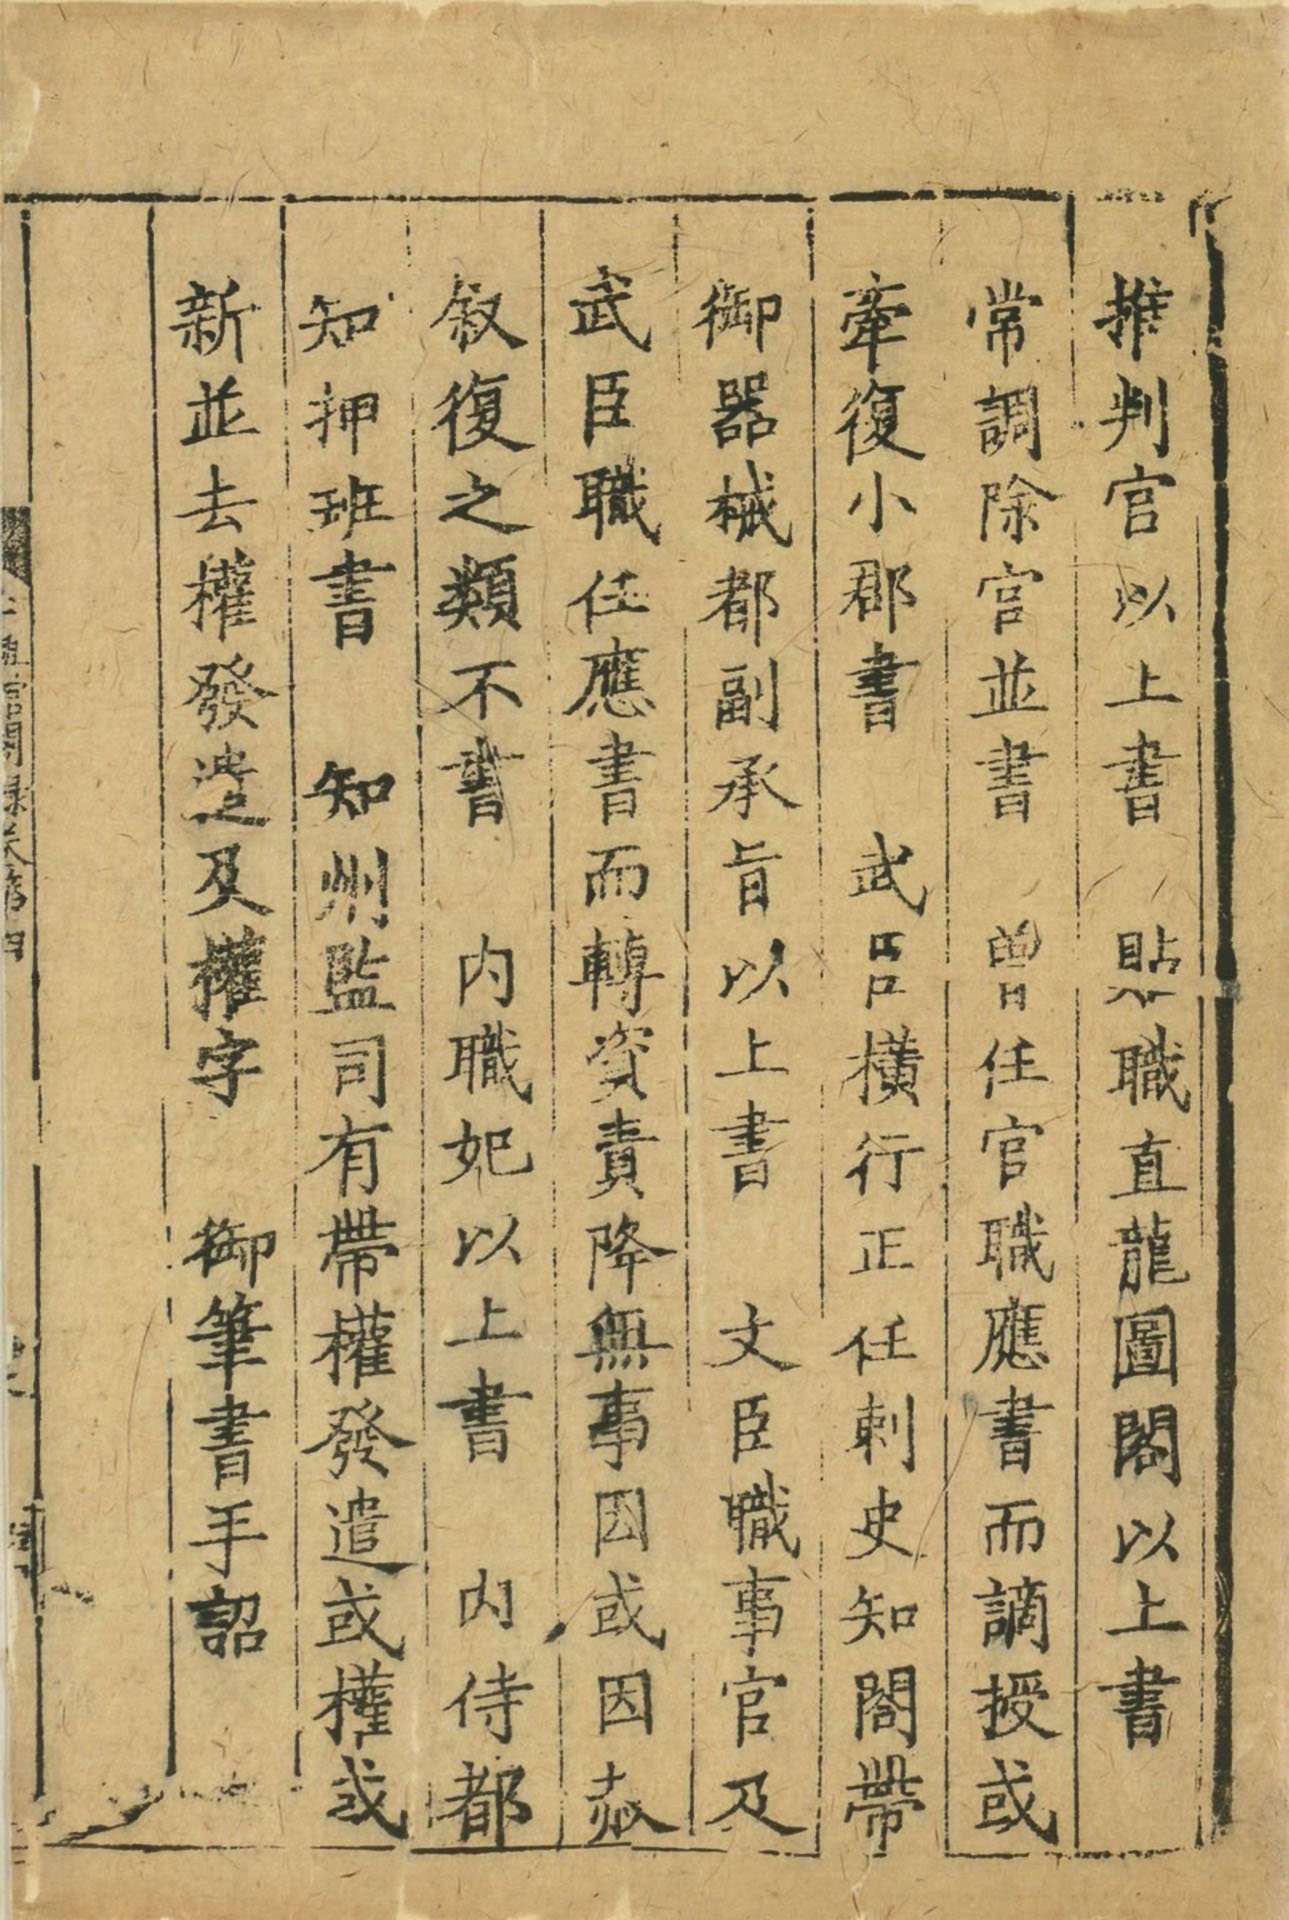 推判官以上書　貼職直龍圖閣以上書
常調除官並書　曾任官職應書而謫授或
牽復小郡書　武臣橫行正任刺史知閤帶
御器械都副承旨以上書　文臣職事官及
武臣職任應書而轉資責降無事因或因赦
叙復之類不書　内職妃以上書　内侍都
知押班書　知州監司有帶權發遣或權或
新並去權發遣及權字　御筆書手詔
官閣録卷第四